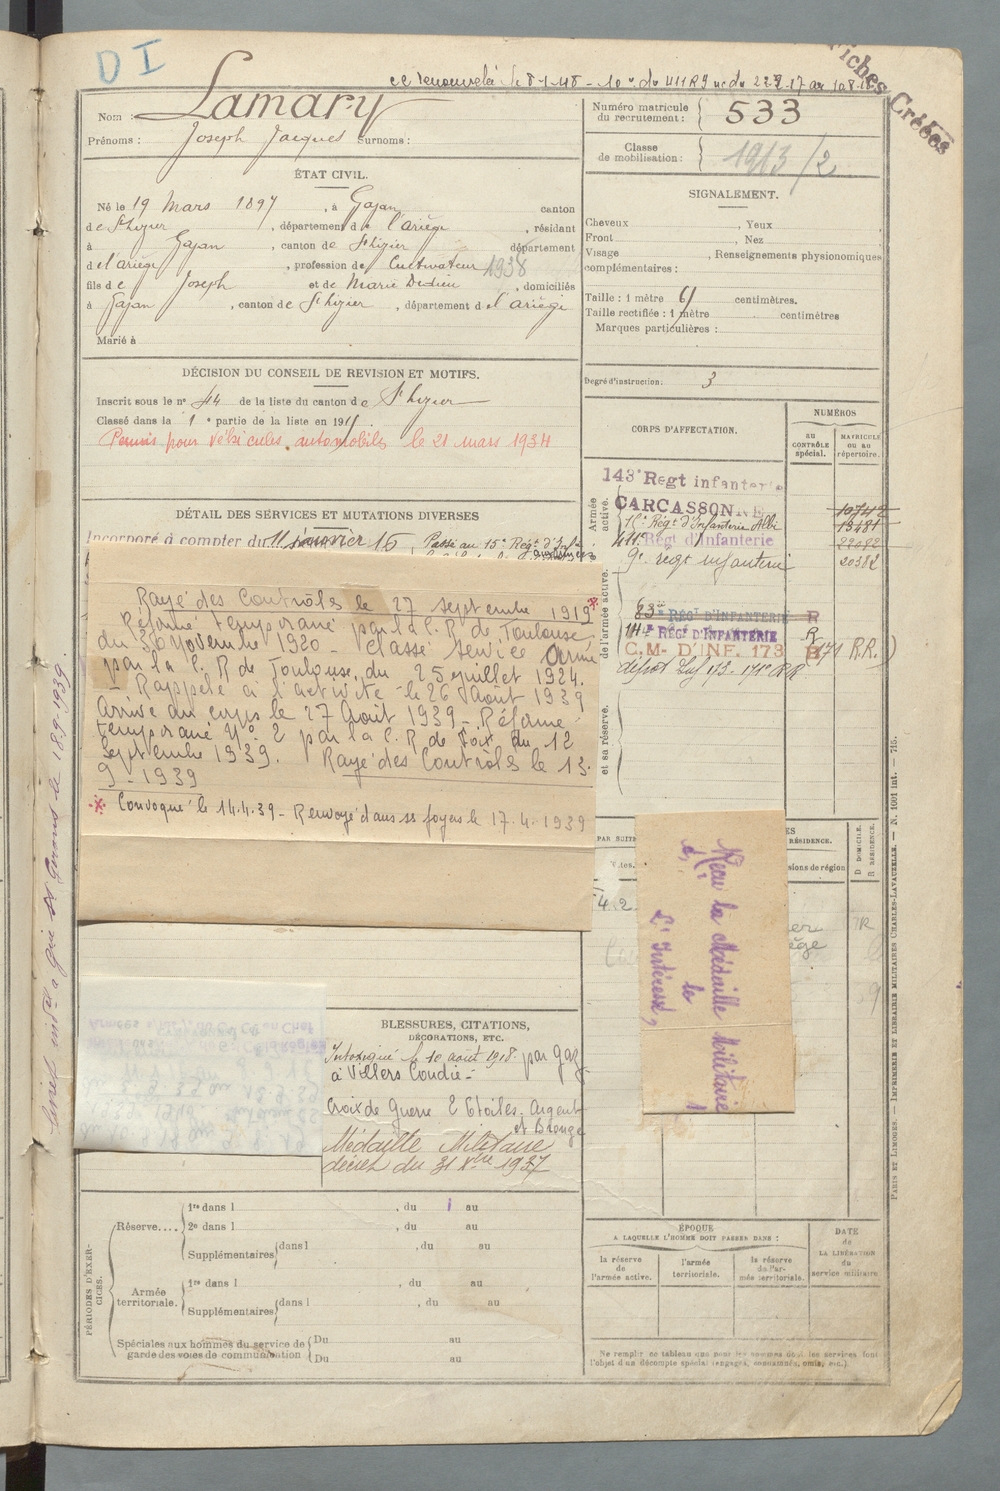 D I
ce renouvelé le 8-1-48 - 10 du 411 RI
Fiches Créées
Nom : Lamary
Prénoms : Joseph Jacques Surnoms :
Numéro matricule du recrutement : 533
Classe de mobilisation : 1913/2
ÉTAT CIVIL.
Né le 19 Mars 1897, à Gajan canton
de St Lizier, département de l'ariège, résidant
à Gajan, canton de St Lizier département
de l'ariège, profession de Cultivateur 1938
fils de Joseph et de Marie Dedieu, domiciliés
à Gajan, canton de St Lizier, département de l'ariège
Marié à
SIGNALEMENT.
Cheveux , Yeux
Front , Nez
Visage , Renseignements physionomiques
complémentaires :
Taille : 1 mètre 61 centimètres.
Taille rectifiée : 1 mètre centimètres
Marques particulières :
Degré d'instruction : 3
DÉCISION DU CONSEIL DE REVISION ET MOTIFS.
Inscrit sous le n° 44 de la liste du canton de St Lizier
Classé dans la 1e partie de la liste en 191
Permis pour véhicules automobiles le 21 mars 1934
DÉTAIL DES SERVICES ET MUTATIONS DIVERSES
Incorporé à compter du 11 janvier 16, Passé au 15e Régt d'Infie
Rayé des Contrôles le 27 septembre 1919 *
Réformé temporaire par la C. R de Toulouse
du 30 novembre 1920 - Classé service armé
par la C. R de Toulouse du 25 juillet 1924.
- Rappelé à l'activité le 26 Août 1939
Arrivé au corps le 27 Août 1939 - Réformé
temporaire N° 2 par la C. R de Foix du 12
Septembre 1939. Rayé des Contrôles le 13.
9 - 1939
* Convoqué le 14.4.39 - Renvoyé dans ses foyers le 17.4.1939
CORPS D'AFFECTATION.
NUMÉROS
au CONTRÔLE spécial.
MATRICULE ou au répertoire.
Armée active.
143e Regt infanterie
CARCASSONNE
15e Régt d'Infanterie Albi
411e Régt d'Infanterie
9e régt infanterie
20382
de l'armée active.
83e RÉGT D'INFANTERIE R
14e RÉGT D'INFANTERIE R
C.M. D'INF. 173 (171 R.R.)
dépôt Inf 173 - 171e RR
et sa réserve.
PAR SUITE
RÉSIDENCE.
D DOMICILE.
R RÉSIDENCE.
Reçu la Médaille Militaire
le
L'Intéressé,
BLESSURES, CITATIONS,
DÉCORATIONS, ETC.
Intoxiqué le 10 août 1918 par gaz
à Villers
Croix de Guerre 2 Etoiles. Argent
et Bronze
Médaille Militaire
décret du 31 Xbre 1937
PÉRIODES D'EXERCICES.
Réserve....
1re dans l , du au
2e dans l , du au
Supplémentaires dans l , du au
Armée territoriale.
1re dans l , du au
Supplémentaires dans l , du au
Spéciales aux hommes du service de garde des voies de communication
Du au
Du au
ÉPOQUE
A LAQUELLE L'HOMME DOIT PASSER DANS :
la réserve de l'armée active.
l'armée territoriale.
la réserve de l'armée territoriale.
DATE de LA LIBÉRATION du service militaire
Ne remplir ce tableau que pour les hommes dont les services font l'objet d'un décompte spécial (engagés, condamnés, omis, etc.).
PARIS ET LIMOGES. — IMPRIMERIE ET LIBRAIRIE MILITAIRES CHARLES-LAVAUZELLE. — N. 1001 int. — 715.